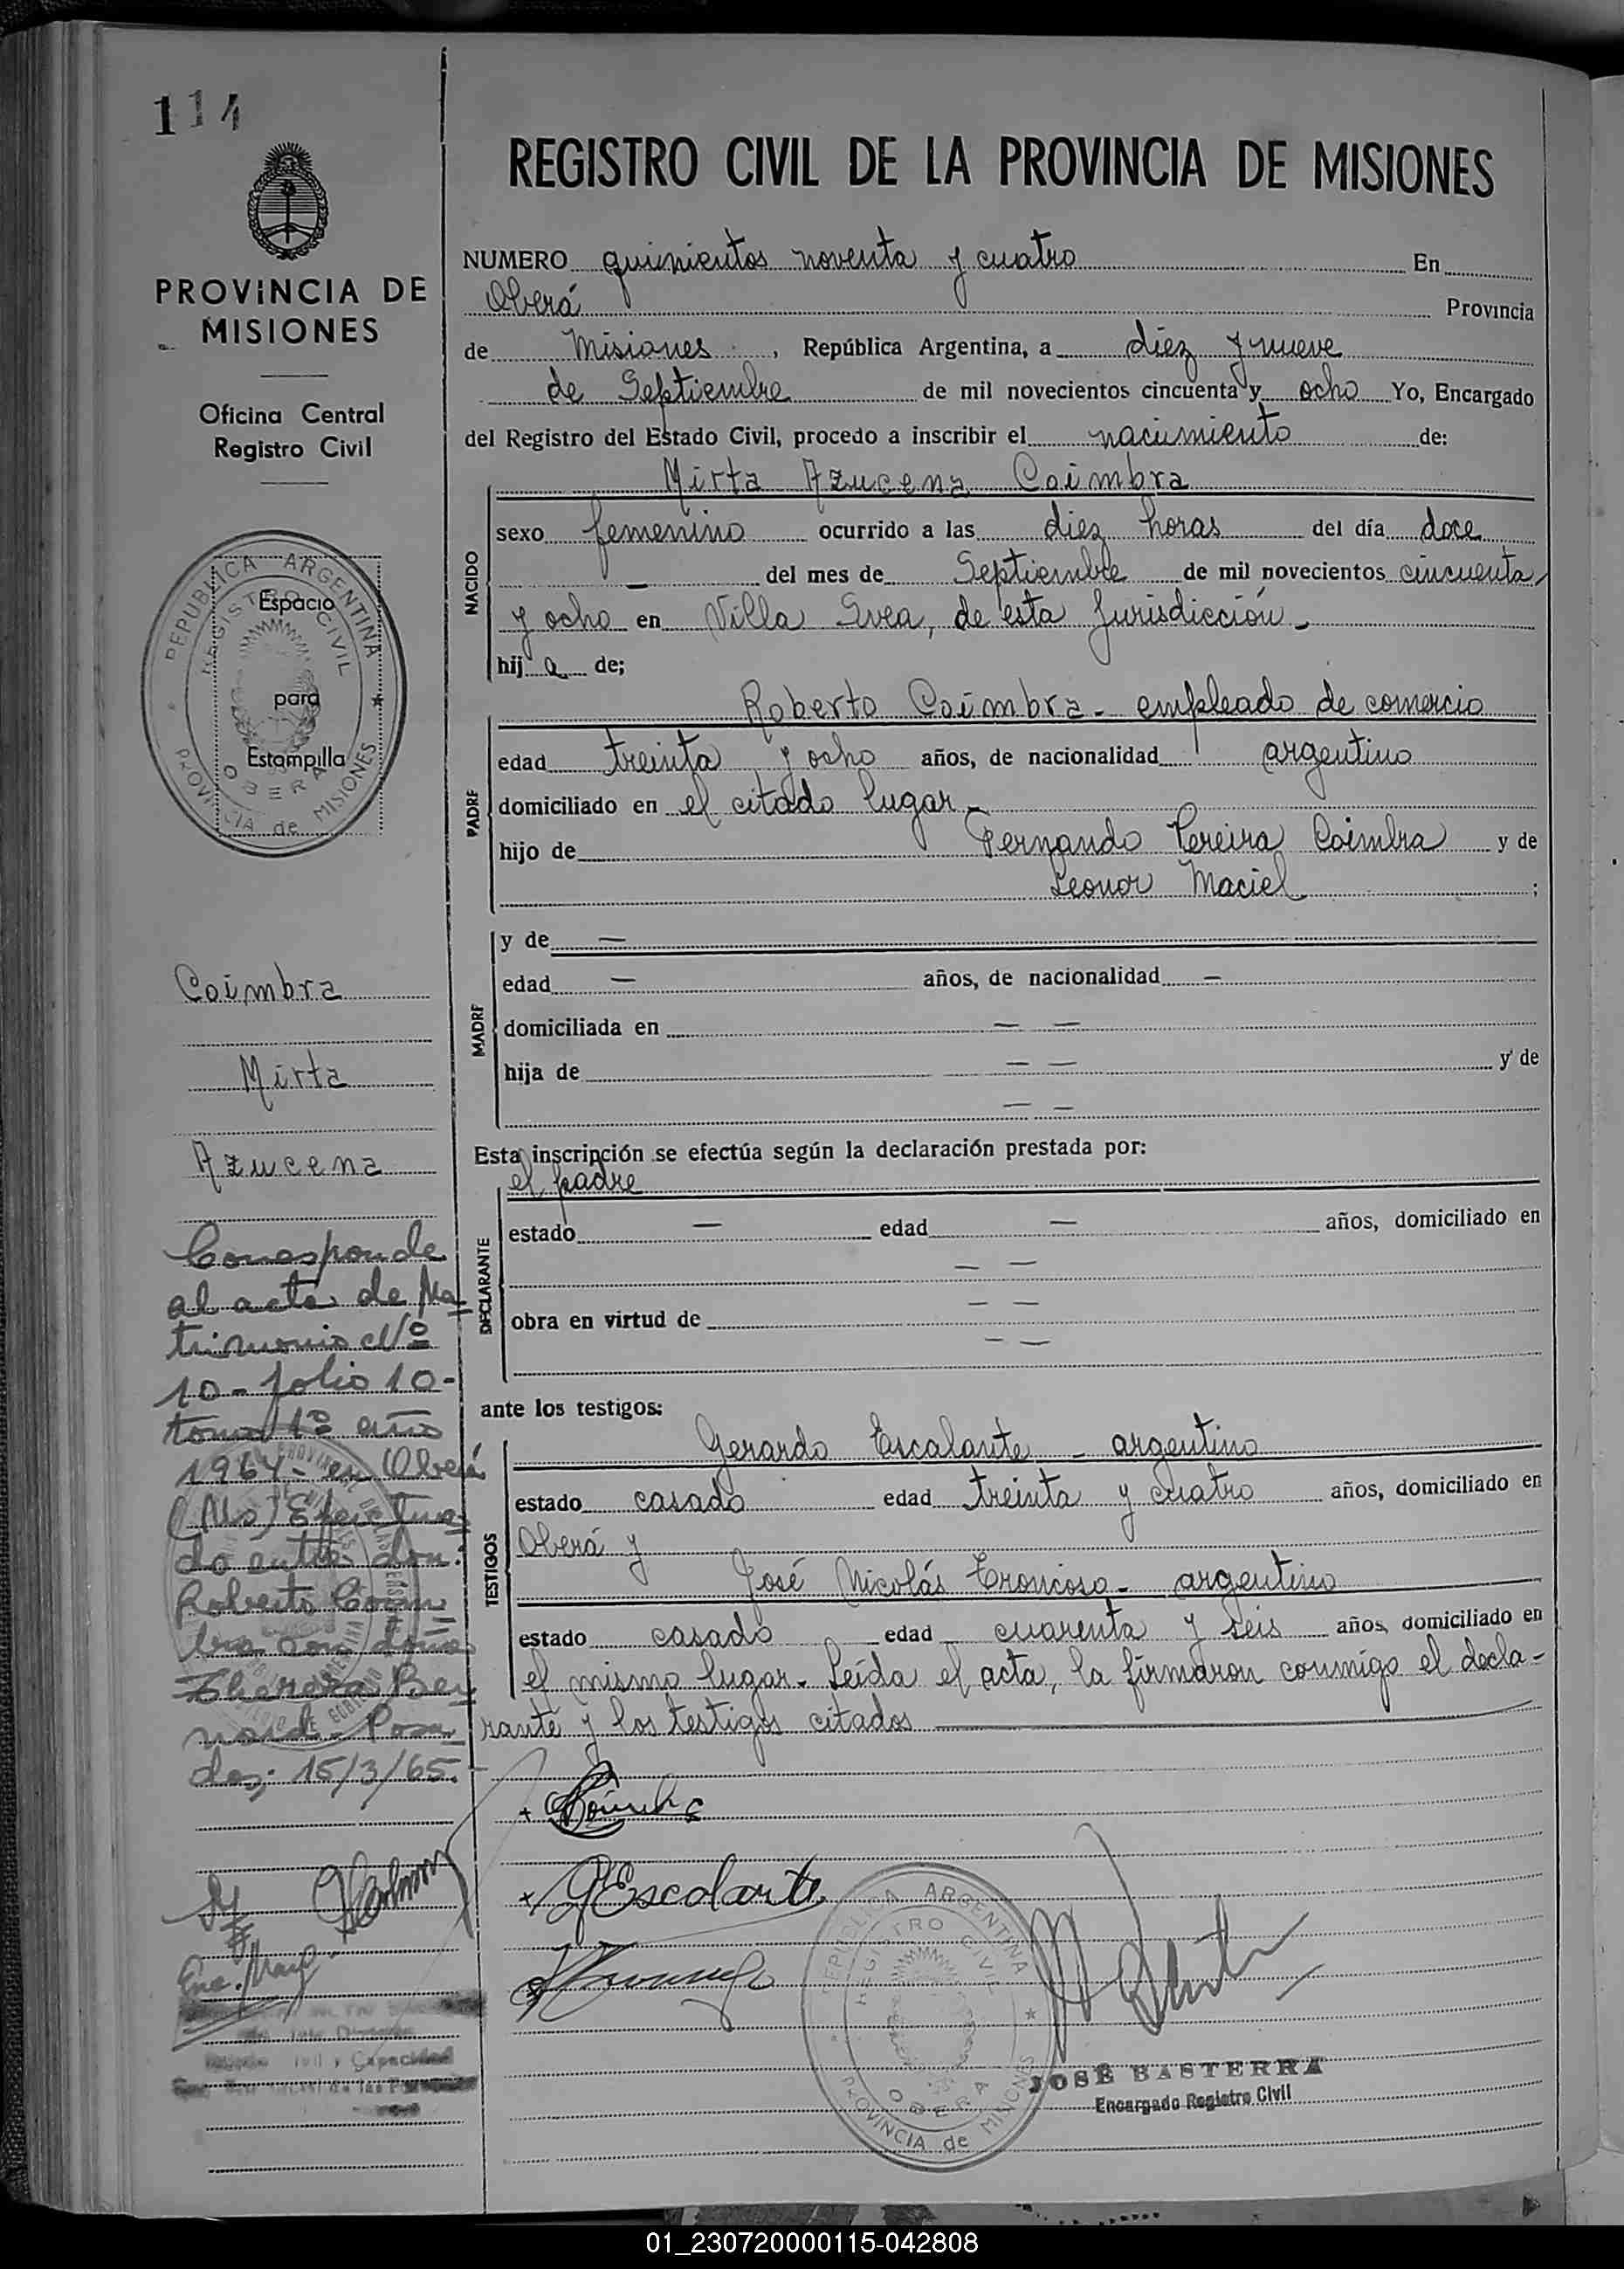 114
PROVINCIA DE
MISIONES
Oficina Central
Registro Civil
REPUBLICA ARGENTINA
REGISTRO CIVIL
OBERA
PROVINCIA de MISIONES
Espacio
para
Estampilla
Coimbra
Mirta
Azucena
Corresponde
al acta de Ma
trimonio Nº
10 - folio 10 -
tomo 1º año
1964 - en Oberá
(Ms) Efectua
do entre don:
Roberto Coim
bra con doña
Ber
nard - Posa
das; 15/3/65.
REGISTRO CIVIL DE LA PROVINCIA DE MISIONES
NUMERO quinientos noventa y cuatro En
Oberá Provincia
de Misiones, República Argentina, a diez y nueve
de Septiembre de mil novecientos cincuenta y ocho Yo, Encargado
del Registro del Estado Civil, procedo a inscribir el nacimiento de:
Mirta Azucena Coimbra
NACIDO
sexo femenino ocurrido a las diez horas del día doce
— del mes de Septiembre de mil novecientos cincuenta
y ocho en Villa Svea, de esta Jurisdicción -
hij a de;
Roberto Coimbra - empleado de comercio
PADRE
edad treinta y ocho años, de nacionalidad argentino
domiciliado en el citado lugar -
hijo de Fernando Pereira Coimbra y de
Leonor Maciel ;
MADRE
y de —
edad — años, de nacionalidad —
domiciliada en — —
hija de — — y de
— —
Esta inscripción se efectúa según la declaración prestada por:
el padre
DECLARANTE
estado — edad — años, domiciliado en
— —
obra en virtud de — —
— —
ante los testigos:
Gerardo Escalante - argentino
TESTIGOS
estado casado edad treinta y cuatro años, domiciliado en
Oberá y
José Nicolás Troncoso - argentino
estado casado edad cuarenta y seis años, domiciliado en
el mismo lugar. Leída el acta, la firmaron conmigo el decla-
rante y los testigos citados
+ Coimbra
+ GEscalante
REPUBLICA ARGENTINA
REGISTRO CIVIL
OBERA
PROVINCIA de MISIONES
JOSÉ BASTERRA
Encargado Registro Civil
01_230720000115-042808